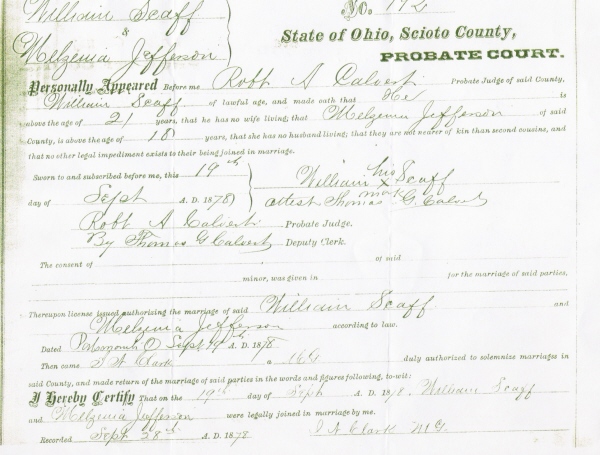 William Scaff
No. 192
&
State of Ohio, Scioto County,
Melzenia Jefferson
PROBATE COURT.
Personally Appeared Before me Robt A Calvert Probate Judge of said County,
William Scaff of lawful age, and made oath that He is
above the age of 21 years, that he has no wife living; that Melzenia Jefferson of said
County, is above the age of 18 years, that she has no husband living; that they are not nearer of kin than second cousins, and
that no other legal impediment exists to their being joined in marriage.
Sworn to and subscribed before me, this 19th
William his x mark Scaff
day of Sept A. D. 1878
attest Thomas G. Calvert
Robt A Calvert Probate Judge.
By Thomas G Calvert Deputy Clerk.
The consent of of said
minor, was given in for the marriage of said parties,
Thereupon license issued authorizing the marriage of said William Scaff and
Melzenia Jefferson according to law.
Dated Portsmouth O Sept 19th A. D. 1878
Then came Clark a MG duly authorized to solemnize marriages in
said County, and made return of the marriage of said parties in the words and figures following, to-wit:
I Hereby Certify That on the 19th day of Sept A. D. 1878. William Scaff
and Melzenia Jefferson were legally joined in marriage by me.
Recorded Sept 28th A. D. 1878 Clark MG